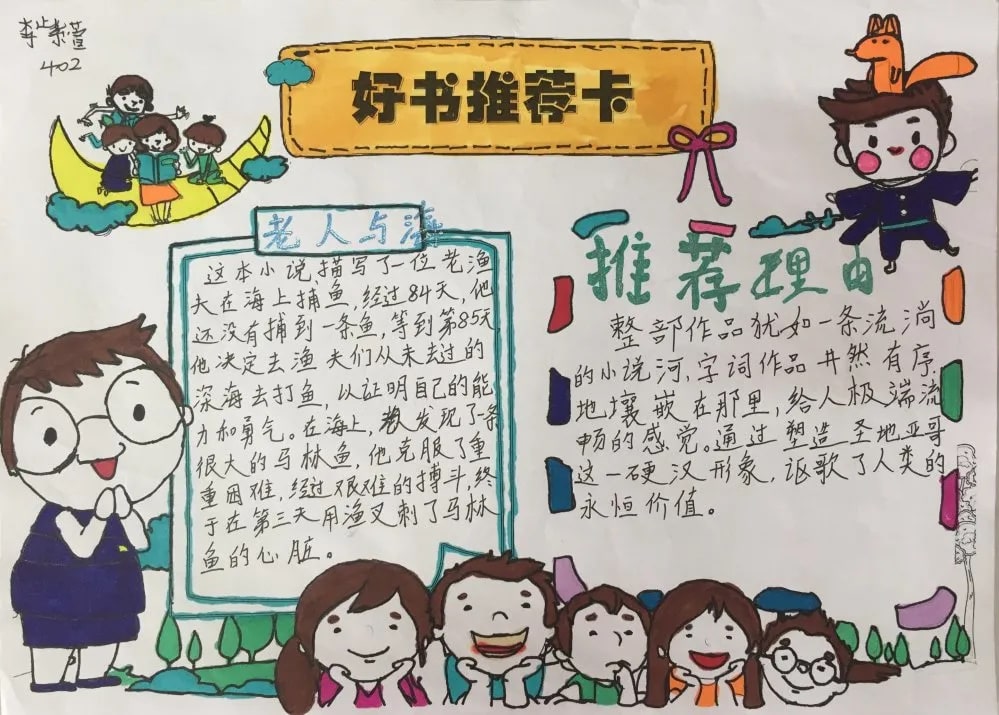 李紫萱
402
好书推荐卡
老人与海
这本小说,描写了一位老渔
夫在海上捕鱼,经过84天,他
还没有捕到一条鱼,等到第85天,
他决定去渔夫们从未去过的
深海去打鱼,以证明自己的能
力和勇气。在海上,发现了一条
很大的马林鱼,他克服了重
重困难,经过艰难的搏斗,终
于在第三天用渔叉刺了马林
鱼的心脏。
推荐理由
整部作品犹如一条流淌
的小说河,字词作品井然有序
地壤嵌在那里,给人极湍流
畅的感觉。通过塑造圣地亚哥
这一硬汉形象,讴歌了人类的
永恒价值。